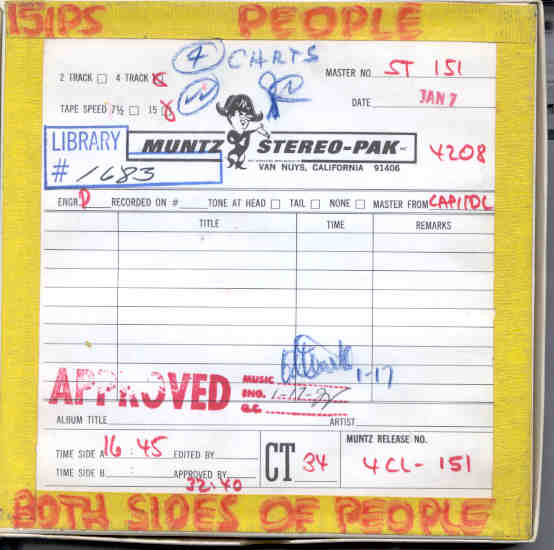 15IPS PEOPLE
4 CHRTS
2 TRACK 4 TRACK X
MASTER NO. ST 151
TAPE SPEED 7½ 15 X
DATE JAN 7
LIBRARY
# 1683
MUNTZ STEREO-PAK INC.
4208
VAN NUYS, CALIFORNIA 91406
ENGR. D RECORDED ON # TONE AT HEAD TAIL NONE MASTER FROM CAPITOL
TITLE TIME REMARKS
1-17
APPROVED
MUSIC
ENG.
Q.C.
ALBUM TITLE ARTIST
TIME SIDE A 16:45 EDITED BY
TIME SIDE B : APPROVED BY
32:40
CT 34
MUNTZ RELEASE NO.
4CL-151
BOTH SIDES OF PEOPLE